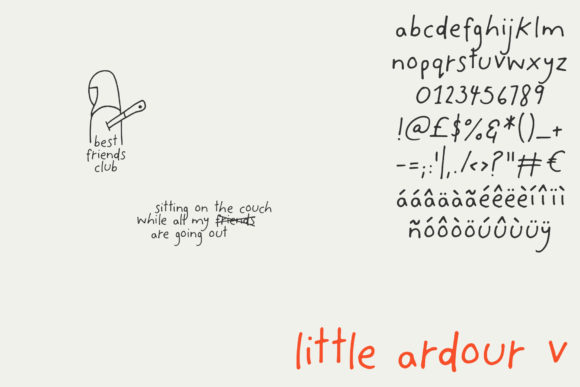 best
friends
club
sitting on the couch
while all my friends
are going out
abcdefghijklm
nopqrstuvwxyz
0123456789
!@£$%&*()_+
-=;:'|,./<>?"#€
áâäàãéêëèíîïì
ñóôòöúûùüÿ
little ardour v